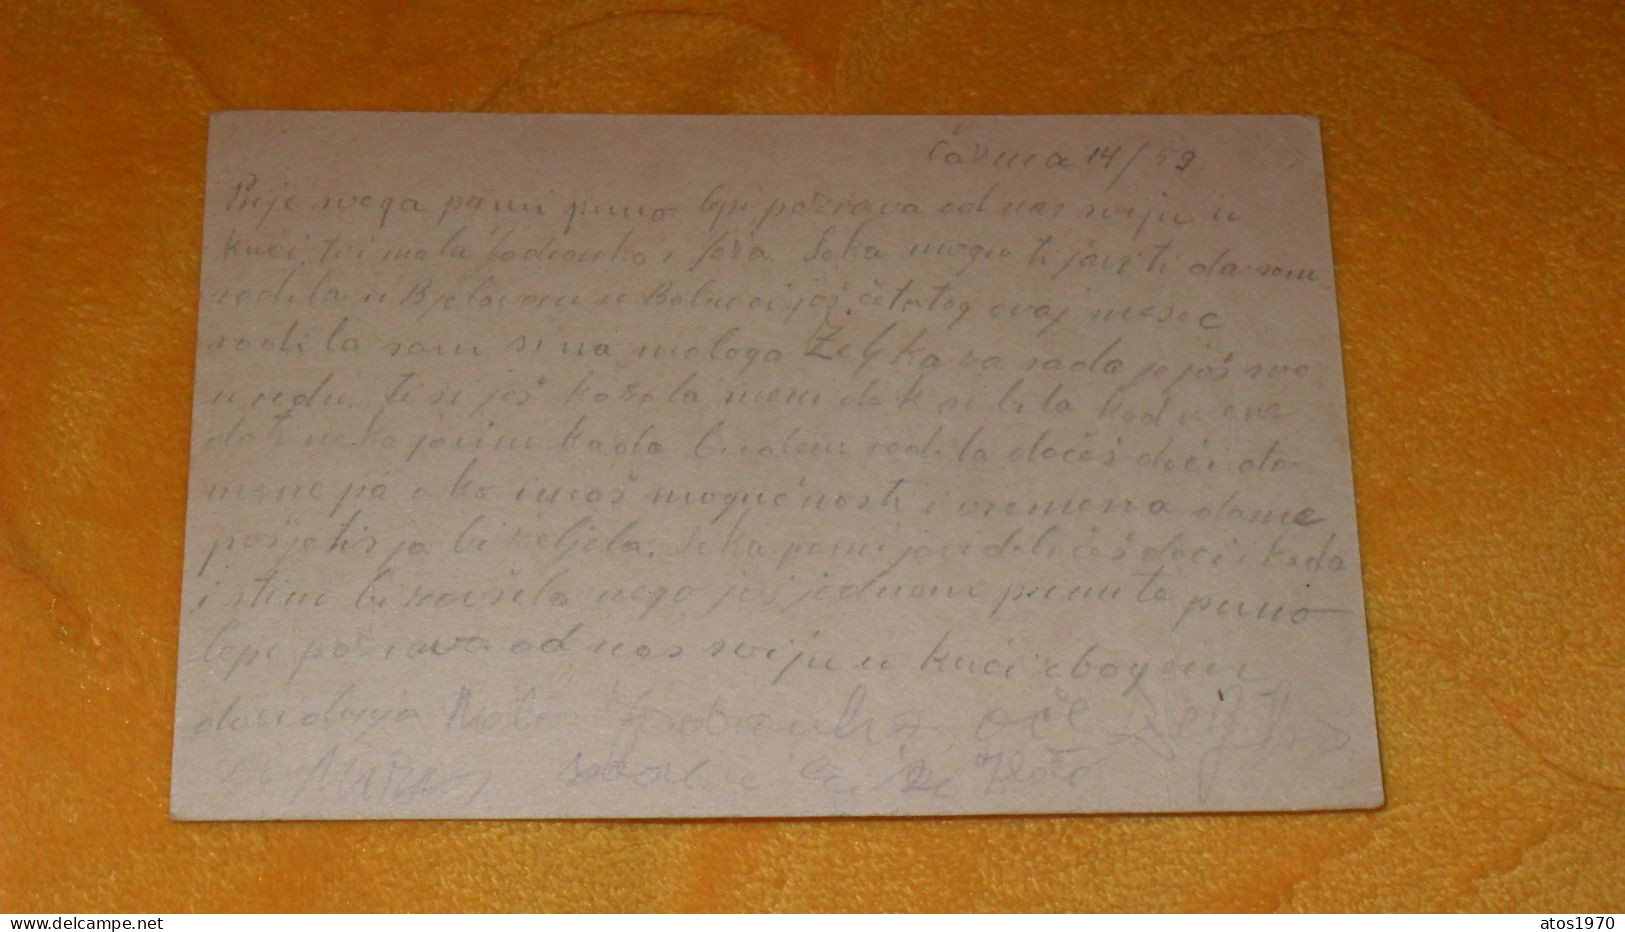 Čazma 14/59
Prije svega primi puno lepi pozrava od nas sviju u
kući, ti i mala Jadranka i Joža. Seka mogu ti javiti da sam
rodila u Bjelovaru u Bolnici još četrtog ovaj mesec
rodila sam sina maloga Željka za sada je još sve
u redu. ti si još kazala meni dok si bila kod mene
da ti neka javim kada budem rodila dočeš doći do
mene pa ako imaš mogučnosti i vremena dame
posjetiš ja bi željela. Seka pa mi javi deli češ doći i kada
i stim bi zavšila nego još jednom primite puno
lepi pozrava od nas sviju u kući zbogom
do viđenja Mala Jadranka
atos1970
delcampe.net